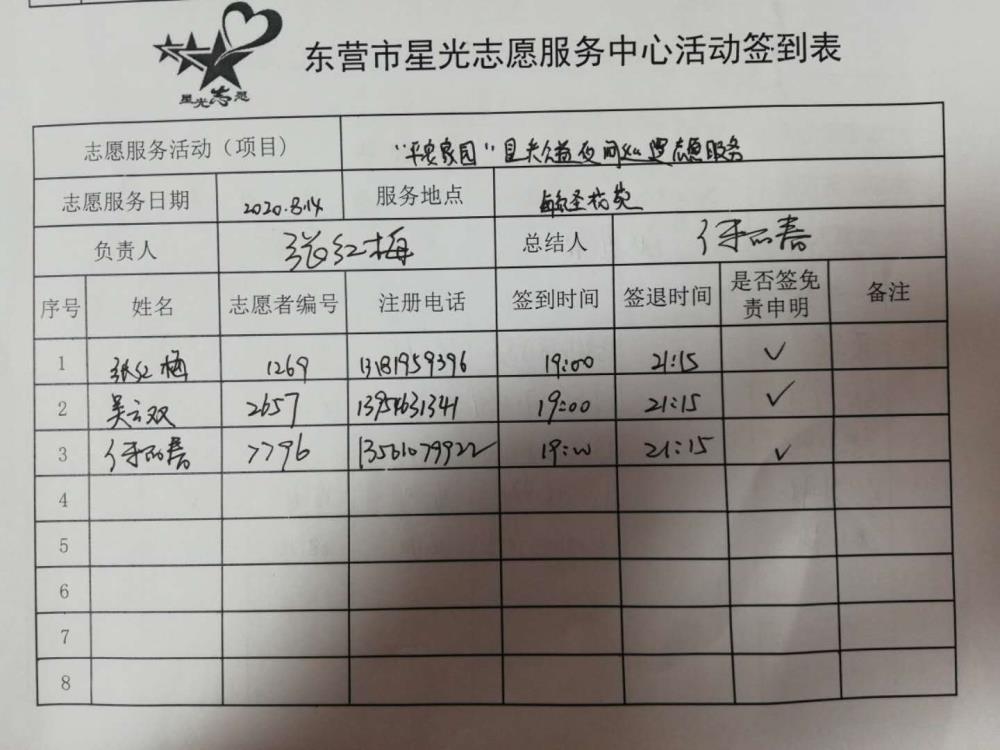 星光志愿
东营市星光志愿服务中心活动签到表
志愿服务活动（项目） “平安家园”星光公益夜间巡逻志愿服务
志愿服务日期 2020.8.14 服务地点
负责人 张红梅 总结人
序号 姓名 志愿者编号 注册电话 签到时间 签退时间 是否签免责申明 备注
1 张红梅 1269 13181959396 19:00 21:15 ✓
2 吴云双 2657 13954631341 19:00 21:15 ✓
3 7796 13561079922 19:00 21:15 ✓
4
5
6
7
8